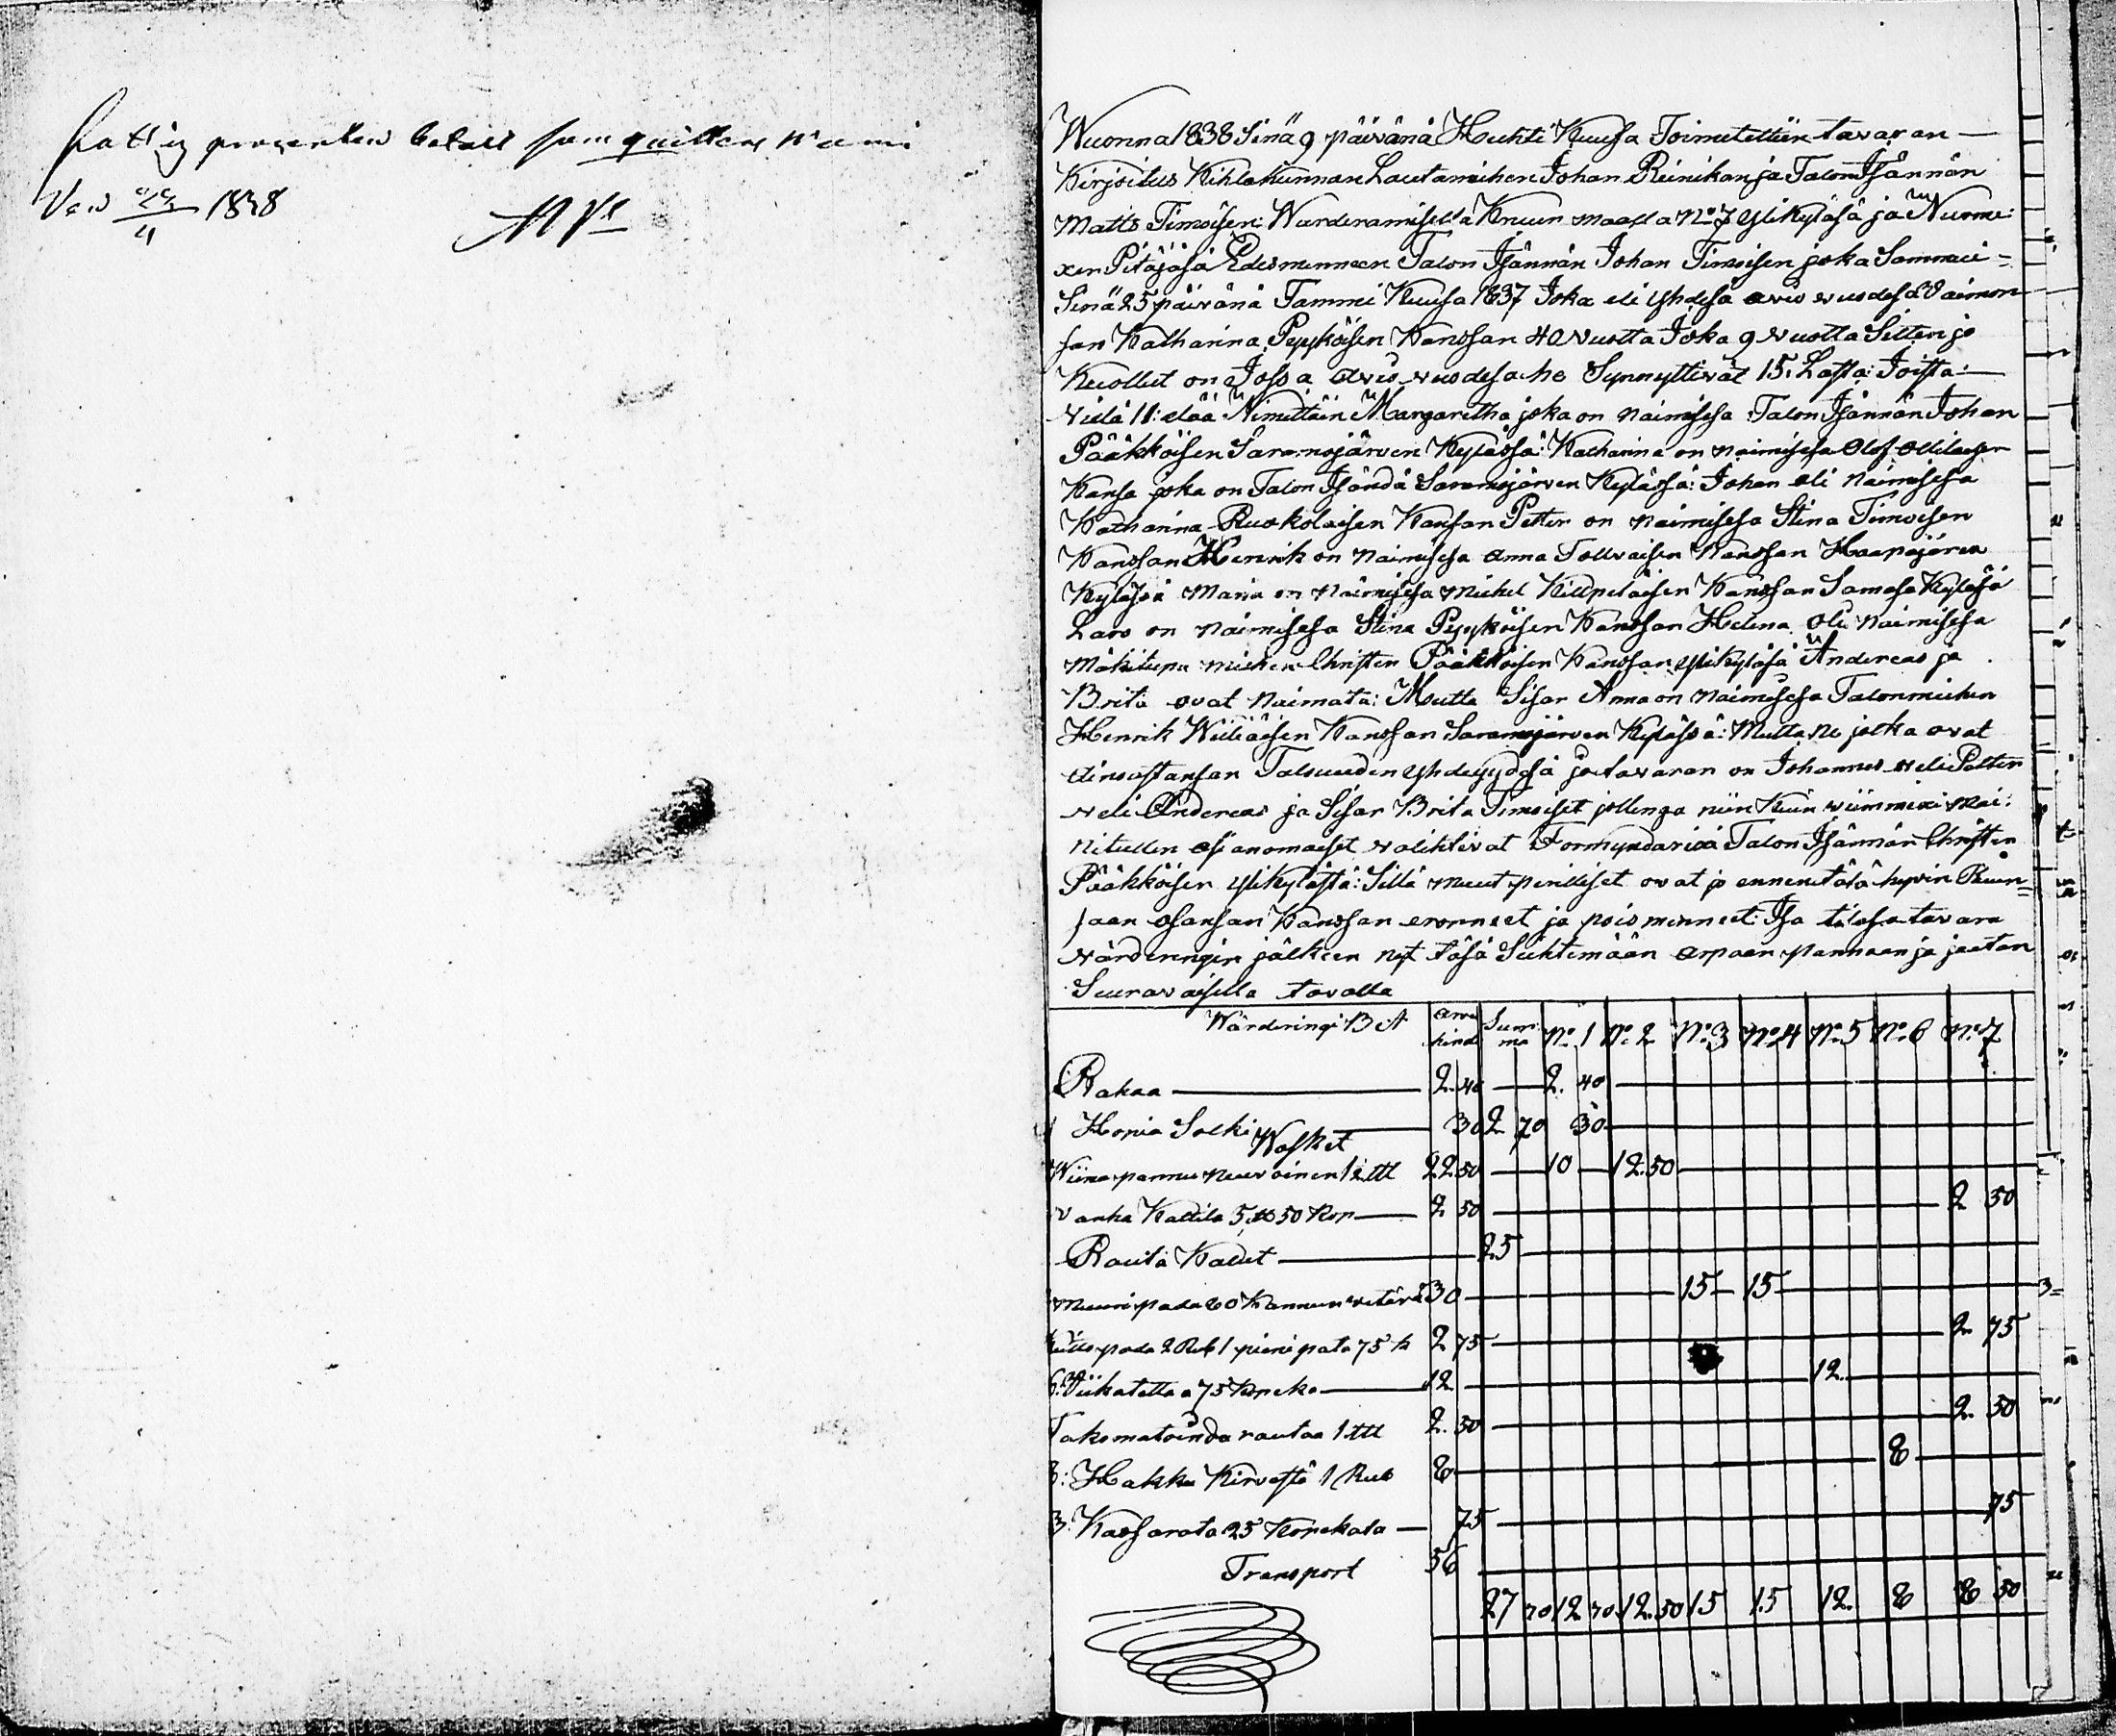 Fattig procenten betalt som quitteras
d. 23/4 1838
Wuonna 1838 Sinä 9 päivänä Huhti Kuusa Toimitettiin tavaran
Kirjoitus Kihlakunnan Lautamiehen Johan Reinikan ja Talon Isännän
Matts Timoisen: Wärderamisella Kruun maalla No 7 Ylikyläsä ja Nurme:
xen Pitäjäsä Edesmenneen Talon Isännän Johan Timoisen joka Sammui
Sinä 25 päivänä Tammi Kuusa 1837 Joka eli Yhdesä avio vuodesa Vaimon
san Katharina Pyykköisen Kanssan 40 Vuotta Joka 9 Vuotta Sitten jo
Kuollut on Jossa avio vuodesa he Synnyttivät 15. Lasta: Joista:
Vielä 11: elää Nimittäin Margaretha joka on naimisesa Talon Isännän Johan
Pääkköisen Saramojärven Kylässä: Katharina on naimisesa Olof Ollilaisen
Kansa joka on Talon Isändä Saramojärven Kylässä: Johan oli naimisesa
Katharina Ruokolaisen Kansan Petter on naimisesa Stina Timoisen
Kanssan Henrik on naimisesa Anna Tolvaisen Kanssan Haapajärven
Kyläsä Maria on naimisesa Mickel Kilpeläisen Kanssan Samasa Kyläsä
Lars on naimisesa Stina Pyykköisen Kanssan Helena oli naimisesa
Mäkitupa miehen Christer Pääkköisen Kanssan Ylikyläsä Andereas ja
Brita ovat naimata: Mutta Sisar Anna on naimisesa Talonmiehen
Henrik Kanssan Saramojärven Kylässä: Mutta ne jotka ovat
ainoastansan Talouuden Yhdeyydesä ja tavaran on Johannes veli Petter
veli Andereas ja Sisar Brita Timoiset jollenga niin Kuin viimmexi mai:
nitullen asianomaiset valihtivat Formyndarixi Talon Isännän Christer
Pääkköisen Ylikylästä: Sillä muut perilliset ovat jo ennen tätä hyvin
saan osansan Kanssan eronneet ja pois menneet: Isa tilasa tavara
värderingin jälkeen nyt täsä arpaan pannaan ja jaetan
Seuravaisella tavalla
Wärderingi B A Arvo hinda Summa No. 1 No. 2 No. 3 No. 4 No. 5 No. 6 No. 7
Rahaa 2. 40 2. 40
Hopia Solki 30 2 70 30
Wasket
Wiina pannu 22 50 10 12. 50
vanha Kattila 5 50 Kop 2 50 2 50
Rauta Kalut 25
Muuri pada 60 Kannun vetävä 30 15 15
pada 2 Rub 1 pieni pata 75 k 2 75 2. 75
6: Viikatetta a 75 Kopeka 12 12.
Takomatoinda rautaa 1 2. 50 2. 50
8: Hakku Kirvestä 1 Rub 8 8
3: Kassarata 25 Kopekata 75 75
Transport 56
27 70 12 70 12. 50 15 15 12. 8 8 50